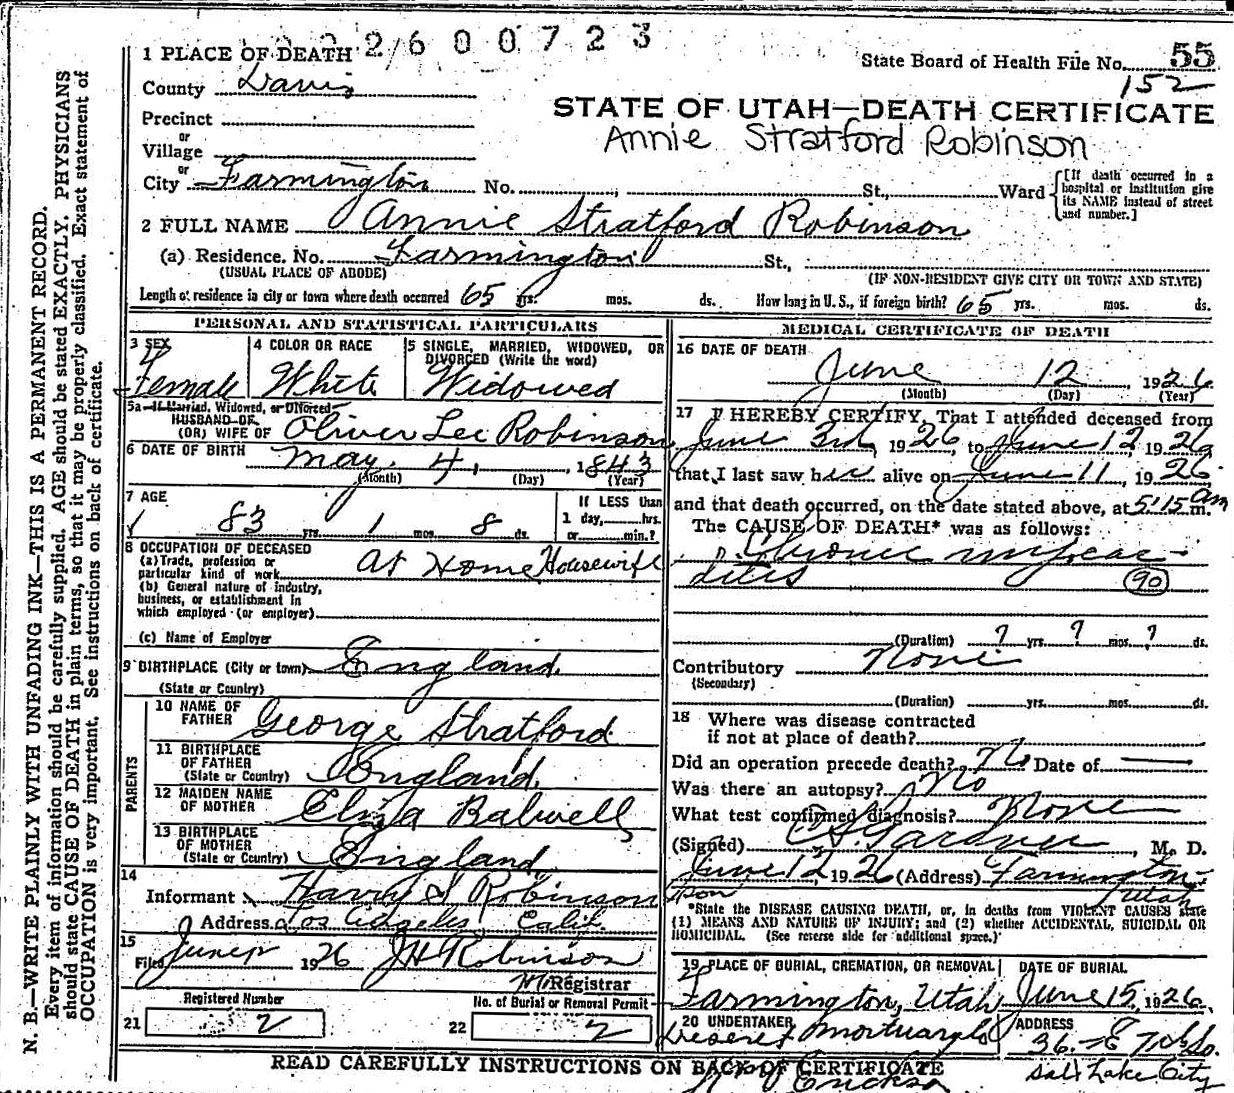 2600723
1 PLACE OF DEATH
State Board of Health File No. 55
152
County Davis
STATE OF UTAH—DEATH CERTIFICATE
Precinct
Annie Stratford Robinson
or
Village
or
City Farmington No. , St., Ward
[If death occurred in a hospital or institution give its NAME instead of street and number.]
2 FULL NAME Annie Stratford Robinson
(a) Residence. No. Farmington St.,
(USUAL PLACE OF ABODE) (IF NON-RESIDENT GIVE CITY OR TOWN AND STATE)
Length of residence in city or town where death occurred 65 yrs. mos. ds. How long in U. S., if foreign birth? 65 yrs. mos. ds.
PERSONAL AND STATISTICAL PARTICULARS
3 SEX Female
4 COLOR OR RACE White
5 SINGLE, MARRIED, WIDOWED, OR DIVORCED (Write the word) Widowed
5a If Married, Widowed, or Divorced
HUSBAND OF
(OR) WIFE OF Oliver Lee Robinson
6 DATE OF BIRTH May 4, 1843
(Month) (Day) (Year)
7 AGE 83 yrs. 1 mos. 8 ds.
If LESS than 1 day, hrs. or min.?
8 OCCUPATION OF DECEASED
(a) Trade, profession or particular kind of work At Home Housewife
(b) General nature of industry, business, or establishment in which employed (or employer)
(c) Name of Employer
9 BIRTHPLACE (City or town) England
(State or Country)
PARENTS
10 NAME OF FATHER George Stratford
11 BIRTHPLACE OF FATHER (State or Country) England
12 MAIDEN NAME OF MOTHER Eliza Balwell
13 BIRTHPLACE OF MOTHER (State or Country) England
14
Informant Harry S Robinson
Address Los Angeles Calif.
15
Filed June 1926 J H Robinson
Registrar
Registered Number
21 2
No. of Burial or Removal Permit
22 2
MEDICAL CERTIFICATE OF DEATH
16 DATE OF DEATH
June 12, 1926
(Month) (Day) (Year)
17 I HEREBY CERTIFY, That I attended deceased from
June 3rd, 1926, to June 12, 1926
that I last saw her alive on June 11, 1926
and that death occurred, on the date stated above, at 5:15 am.
The CAUSE OF DEATH* was as follows:
Chronic myocar-
ditis (90)
(Duration) ? yrs. ? mos. ? ds.
Contributory None
(Secondary)
(Duration) yrs. mos. ds.
18 Where was disease contracted
if not at place of death?
Did an operation precede death? No Date of —
Was there an autopsy? No
What test confirmed diagnosis? None
(Signed) Gardner, M. D.
June 12, 1926 (Address) Farmington
Son Utah
*State the DISEASE CAUSING DEATH, or, in deaths from VIOLENT CAUSES state
(1) MEANS AND NATURE OF INJURY; and (2) whether ACCIDENTAL, SUICIDAL OR
HOMICIDAL. (See reverse side for additional space.)
19 PLACE OF BURIAL, CREMATION, OR REMOVAL Farmington, Utah
DATE OF BURIAL June 15, 1926
20 UNDERTAKER Deseret Mortuary Co
Erickson
ADDRESS 36 E 7th So.
Salt Lake City
READ CAREFULLY INSTRUCTIONS ON BACK OF CERTIFICATE
N. B.—WRITE PLAINLY WITH UNFADING INK—THIS IS A PERMANENT RECORD.
Every item of information should be carefully supplied. AGE should be stated EXACTLY. PHYSICIANS
should state CAUSE OF DEATH in plain terms, so that it may be properly classified. Exact statement of
OCCUPATION is very important. See instructions on back of certificate.